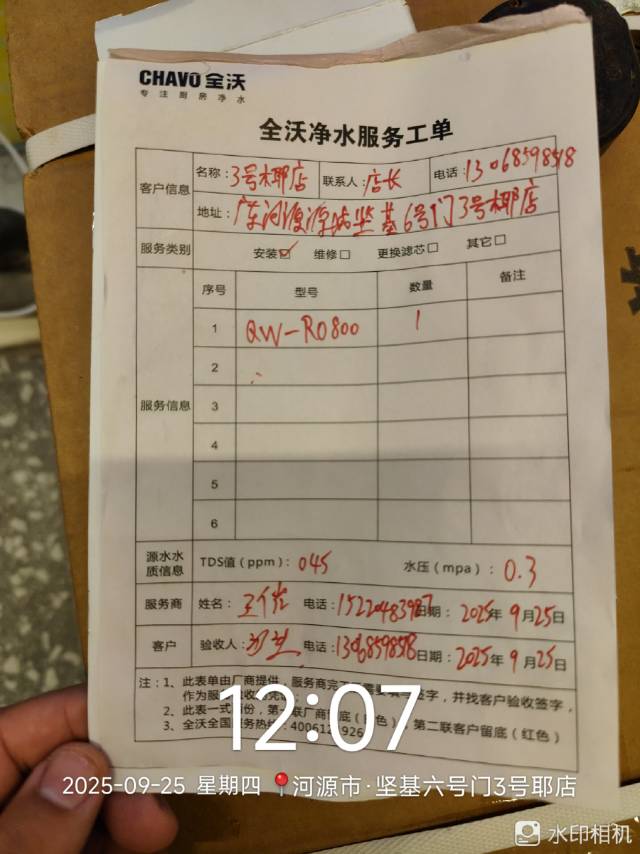 CHAVO 全沃
专注厨房净水
全沃净水服务工单
客户信息
名称：3号椰店 联系人：店长 电话：13068598518
地址：广东河源源城坚基6号门3号椰店
服务类别 安装☑ 维修□ 更换滤芯□ 其它□
服务信息
序号 型号 数量 备注
1 QW-RO800 1
2
3
4
5
6
源水水质信息 TDS值（ppm）：045 水压（mpa）：0.3
服务商 姓名： 电话：15220483987 日期：2025年9月25日
客户 验收人： 电话：13068598518 日期：2025年9月25日
注：1、此表单由厂商提供，服务商完 签字，并找客户验收签字，
作为服务验收
2、此表一式 份，第 联厂商留底（白色），第二联客户留底（红色）
3、全沃全国服务热线：
12:07
2025-09-25 星期四 河源市·坚基六号门3号耶店
水印相机